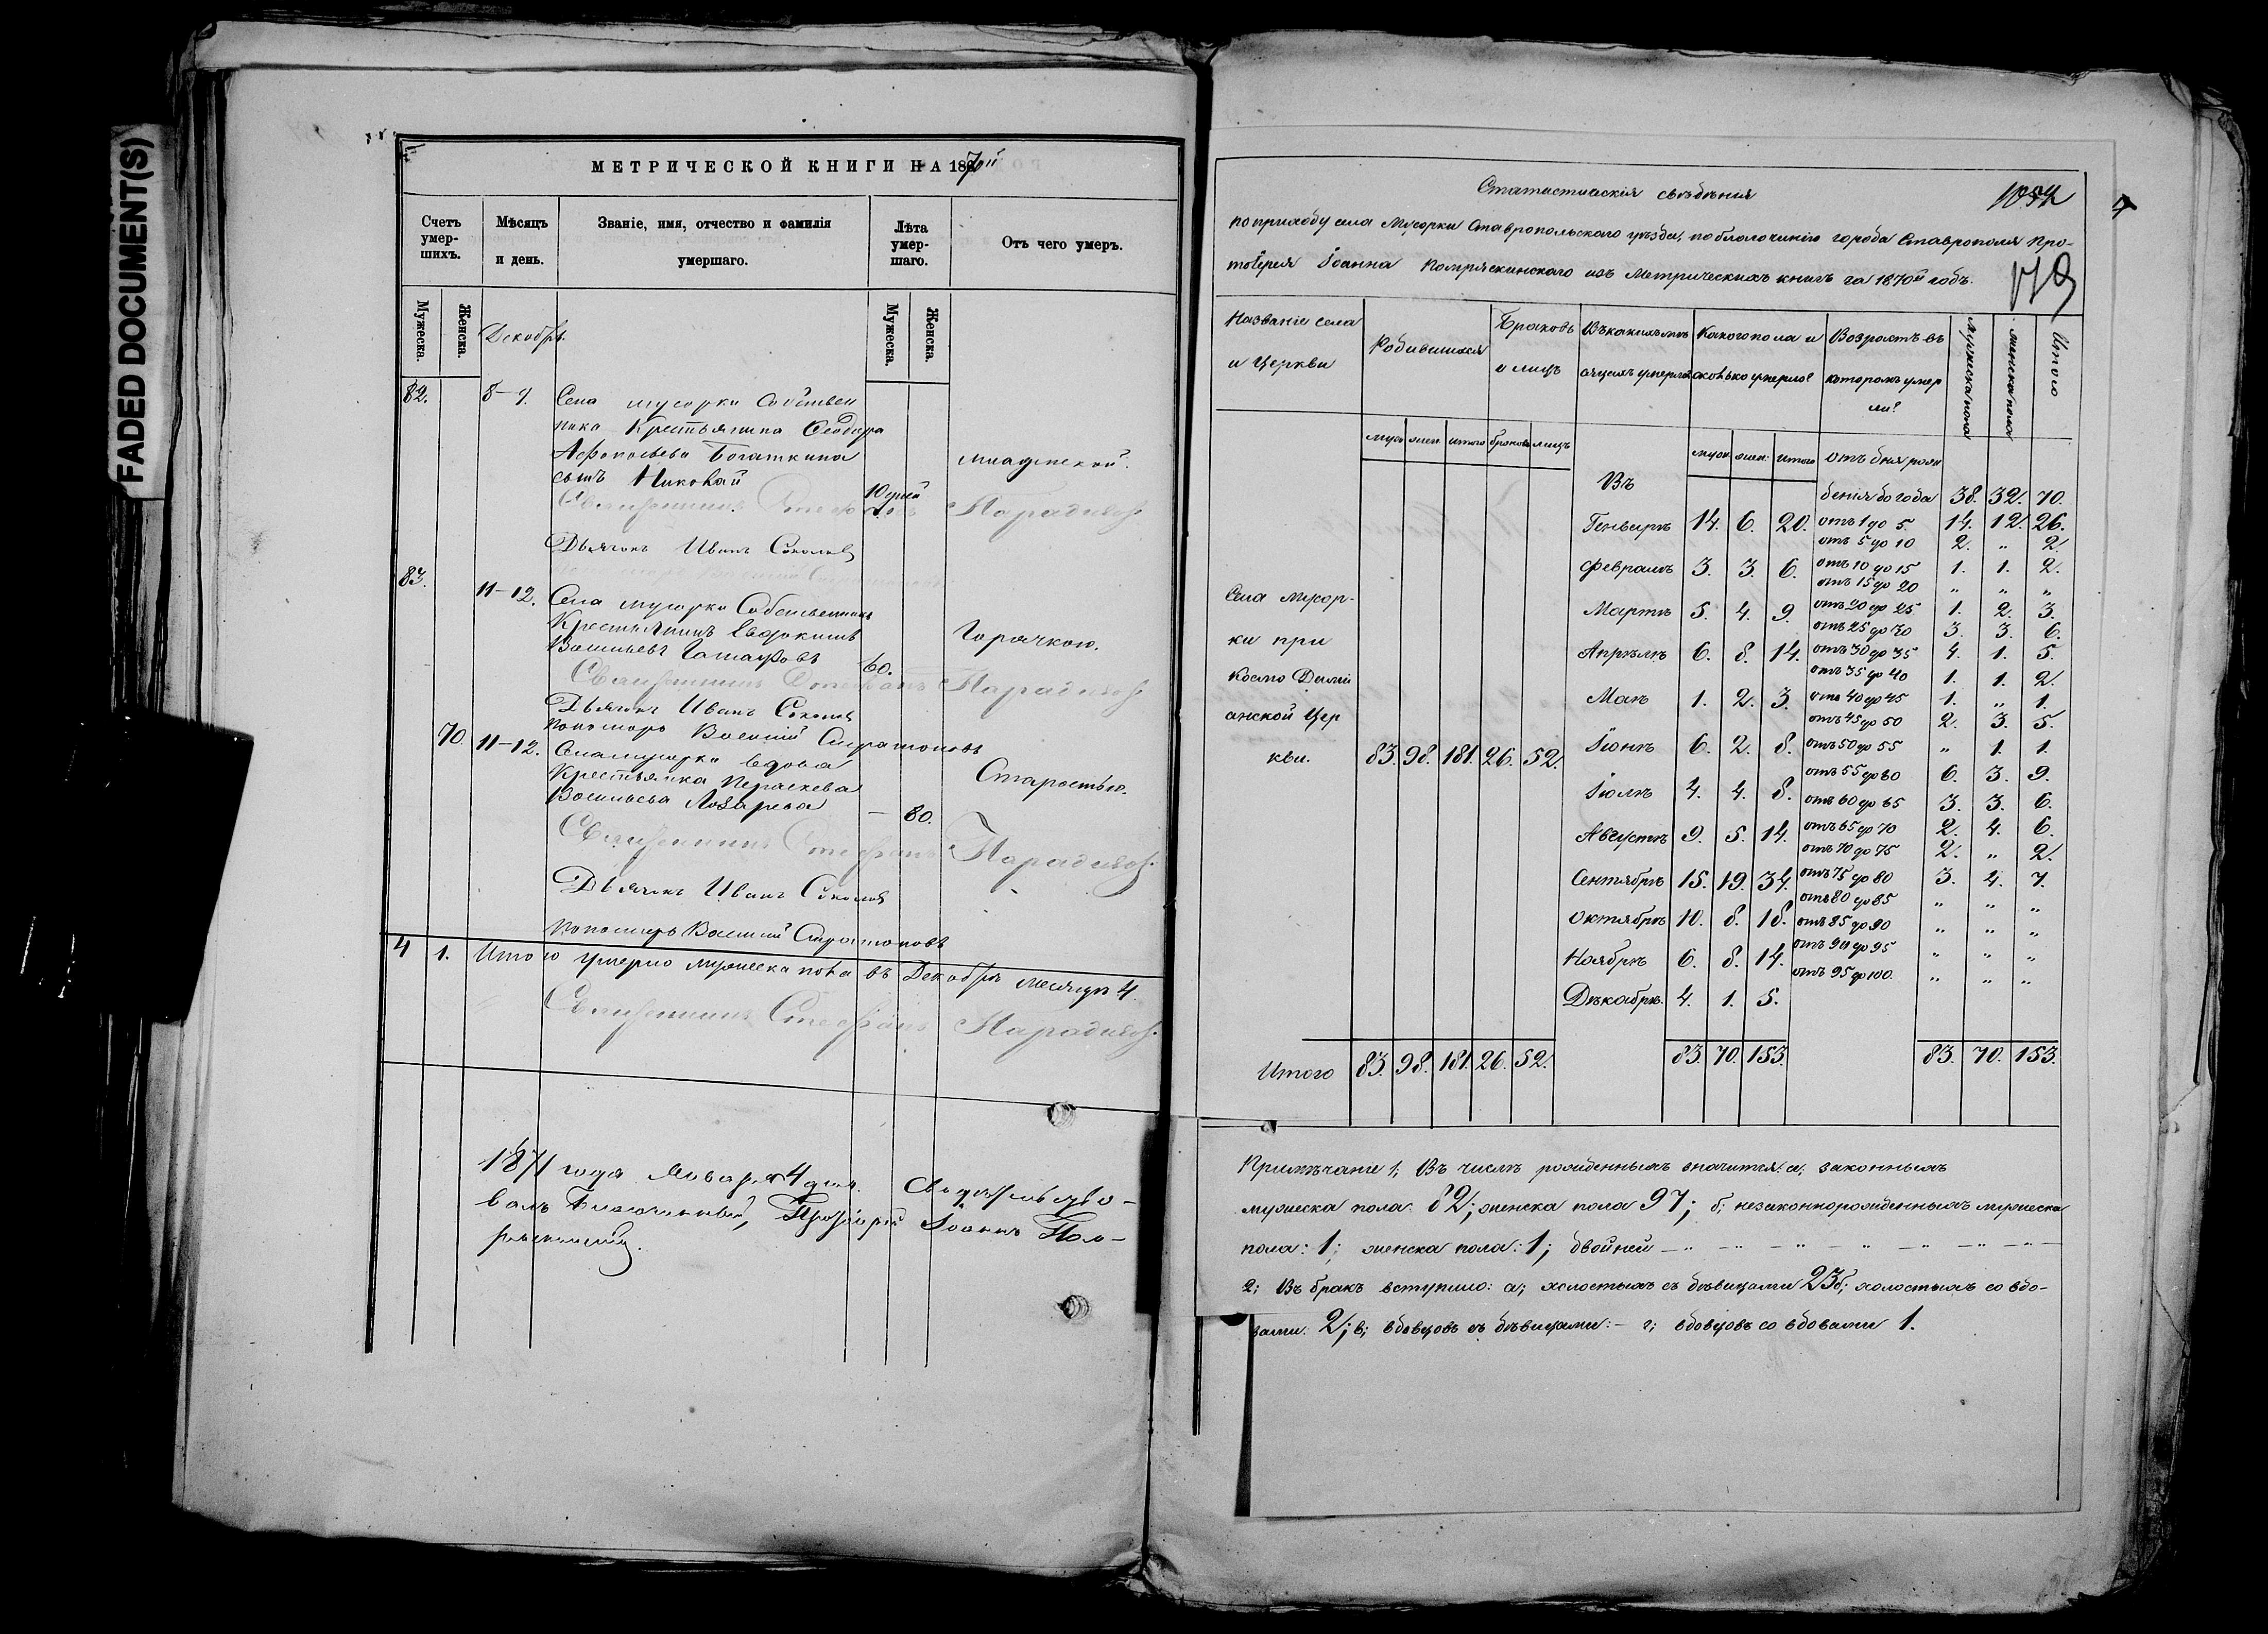 FADED DOCUMENT(S)
МЕТРИЧЕСКОЙ КНИГИ НА 1870й
Счетъ умер-шихъ.
Мѣсяцъ и день.
Званіе, имя, отчество и фамилія умершаго.
Лѣта умер-шаго.
Отъ чего умеръ.
Мужеска.
Женска.
Мужеска.
Женска.
Декабрь
82. 8-9. Села Мусорки Собствен
ника Крестьянина Ѳеодора
Афонасьева Богаткина младенской.
сынъ Николай 10 дней
Священникъ Стефанъ Парадизов
Дьячокъ Иванъ Соколов
83. 11-12. Села Мусорки Собственникъ
Крестьянинъ Евдокимъ Горячкою.
Васильевъ 60.
Священникъ Стефанъ Парадизов
Дьячокъ Иванъ Соколов
Пономарь Василий
70. 11-12. Села Мусорки вдова
Крестьянка Параскева Старостью.
Васильева Лазарева — 80.
Священникъ Стефанъ Парадизов
Дьячокъ Иванъ Соколов
Пономарь Василий
4 1. Итого умерло мужеска пола въ Декабрѣ месяцѣ 4.
Священникъ Стефанъ Парадизов
1871 года Января 4 дня. Свидѣтельство-
валъ Благочинный, Протоіерей Іоаннъ Пом-
ряскинский
Статистическія свѣдѣнія
по приходу села Мусорки Ставропольскаго уѣзда, по благочинію города Ставрополя Про-
тоіерея Іоанна Помряскинскаго изъ Метрическихъ книгъ за 1870й годъ.
Названіе села и Церкви
Родившихся
Браковъ и лицъ
Въ какихъ мѣ сяцахъ умерло
Какого пола и сколько умерло?
Возрастъ въ которомъ умер ли?
мужеска пола
женска пола
Итого
муж жен итого браковъ лицъ
муж. жен: итого
Въ
отъ дня рож
денія до года 38. 32. 70.
Генварѣ 14. 6. 20. отъ 1 до 5. 14. 12. 26.
отъ 5 до 10 2. „ 2.
Февралѣ 3. 3. 6. отъ 10 до 15 1. 1. 2.
отъ 15 до 20 „ „ „
Мартѣ 5. 4. 9. отъ 20 до 25. 1. 2. 3.
отъ 25 до 30 3. 3. 6.
Апрѣлѣ 6. 8. 14. отъ 30 до 35 4. 1. 5.
отъ 35 до 40 1. 1. 2.
Маѣ 1. 2. 3. отъ 40 до 45 1. „ 1.
отъ 45 до 50 2. 3. 5.
Іюнѣ 6. 2. 8. отъ 50 до 55 „ 1. 1.
отъ 55 до 60 6. 3. 9.
Іюлѣ 4. 4. 8. отъ 60 до 65 3. 3. 6.
Августѣ 9. 5. 14. отъ 65 до 70 2. 4. 6.
отъ 70 до 75 2. „ 2.
Сентябрѣ 15. 19. 34. отъ 75 до 80 3. 4. 7.
отъ 80 до 85 „ „ „
Октябрѣ 10. 8. 18. отъ 85 до 90 „ „ „
отъ 90 до 95 „ „ „
Ноябрѣ 6. 8. 14. отъ 95 до 100. „ „ „
Декабрѣ. 4. 1. 5.
Села Мусор-
ки при
Космо Дамі
анской Цер
кви. 83. 98. 181. 26. 52.
Итого 83. 98. 181. 26. 52. 83. 70. 153. 83. 70. 153.
Примѣчаніе 1; Въ числѣ рожденныхъ значится: а; законныхъ
мужеска пола: 82; женска пола 97; б; незаконнорожденныхъ мужеска
пола: 1; женска пола: 1; двойней — „ — „ — „ — „ — „ —
2; Въ бракъ вступило: а; холостыхъ съ дѣвицами 23 б; холостыхъ со вдо-
вами. 2; в; вдовцовъ съ дѣвицами: — г; вдовцовъ со вдовами 1.